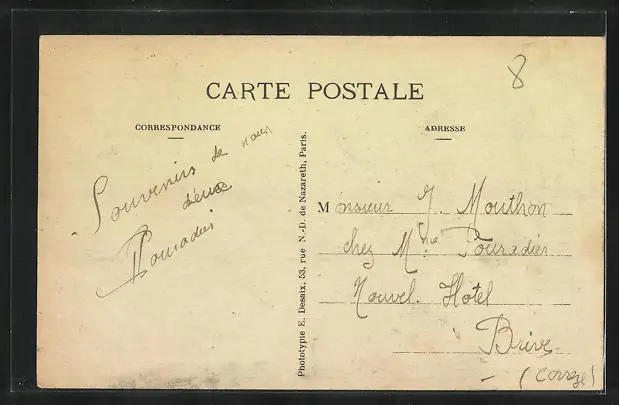 8
CARTE POSTALE
CORRESPONDANCE
Souvenirs de nous
deux
Pouradier
Phototypie E. Desaix, 53, rue N.-D. de Nazareth, Paris.
ADRESSE
Monsieur J. Mouthon
chez Mme Pouradier
Nouvel Hotel
Brive
(Corrèze)